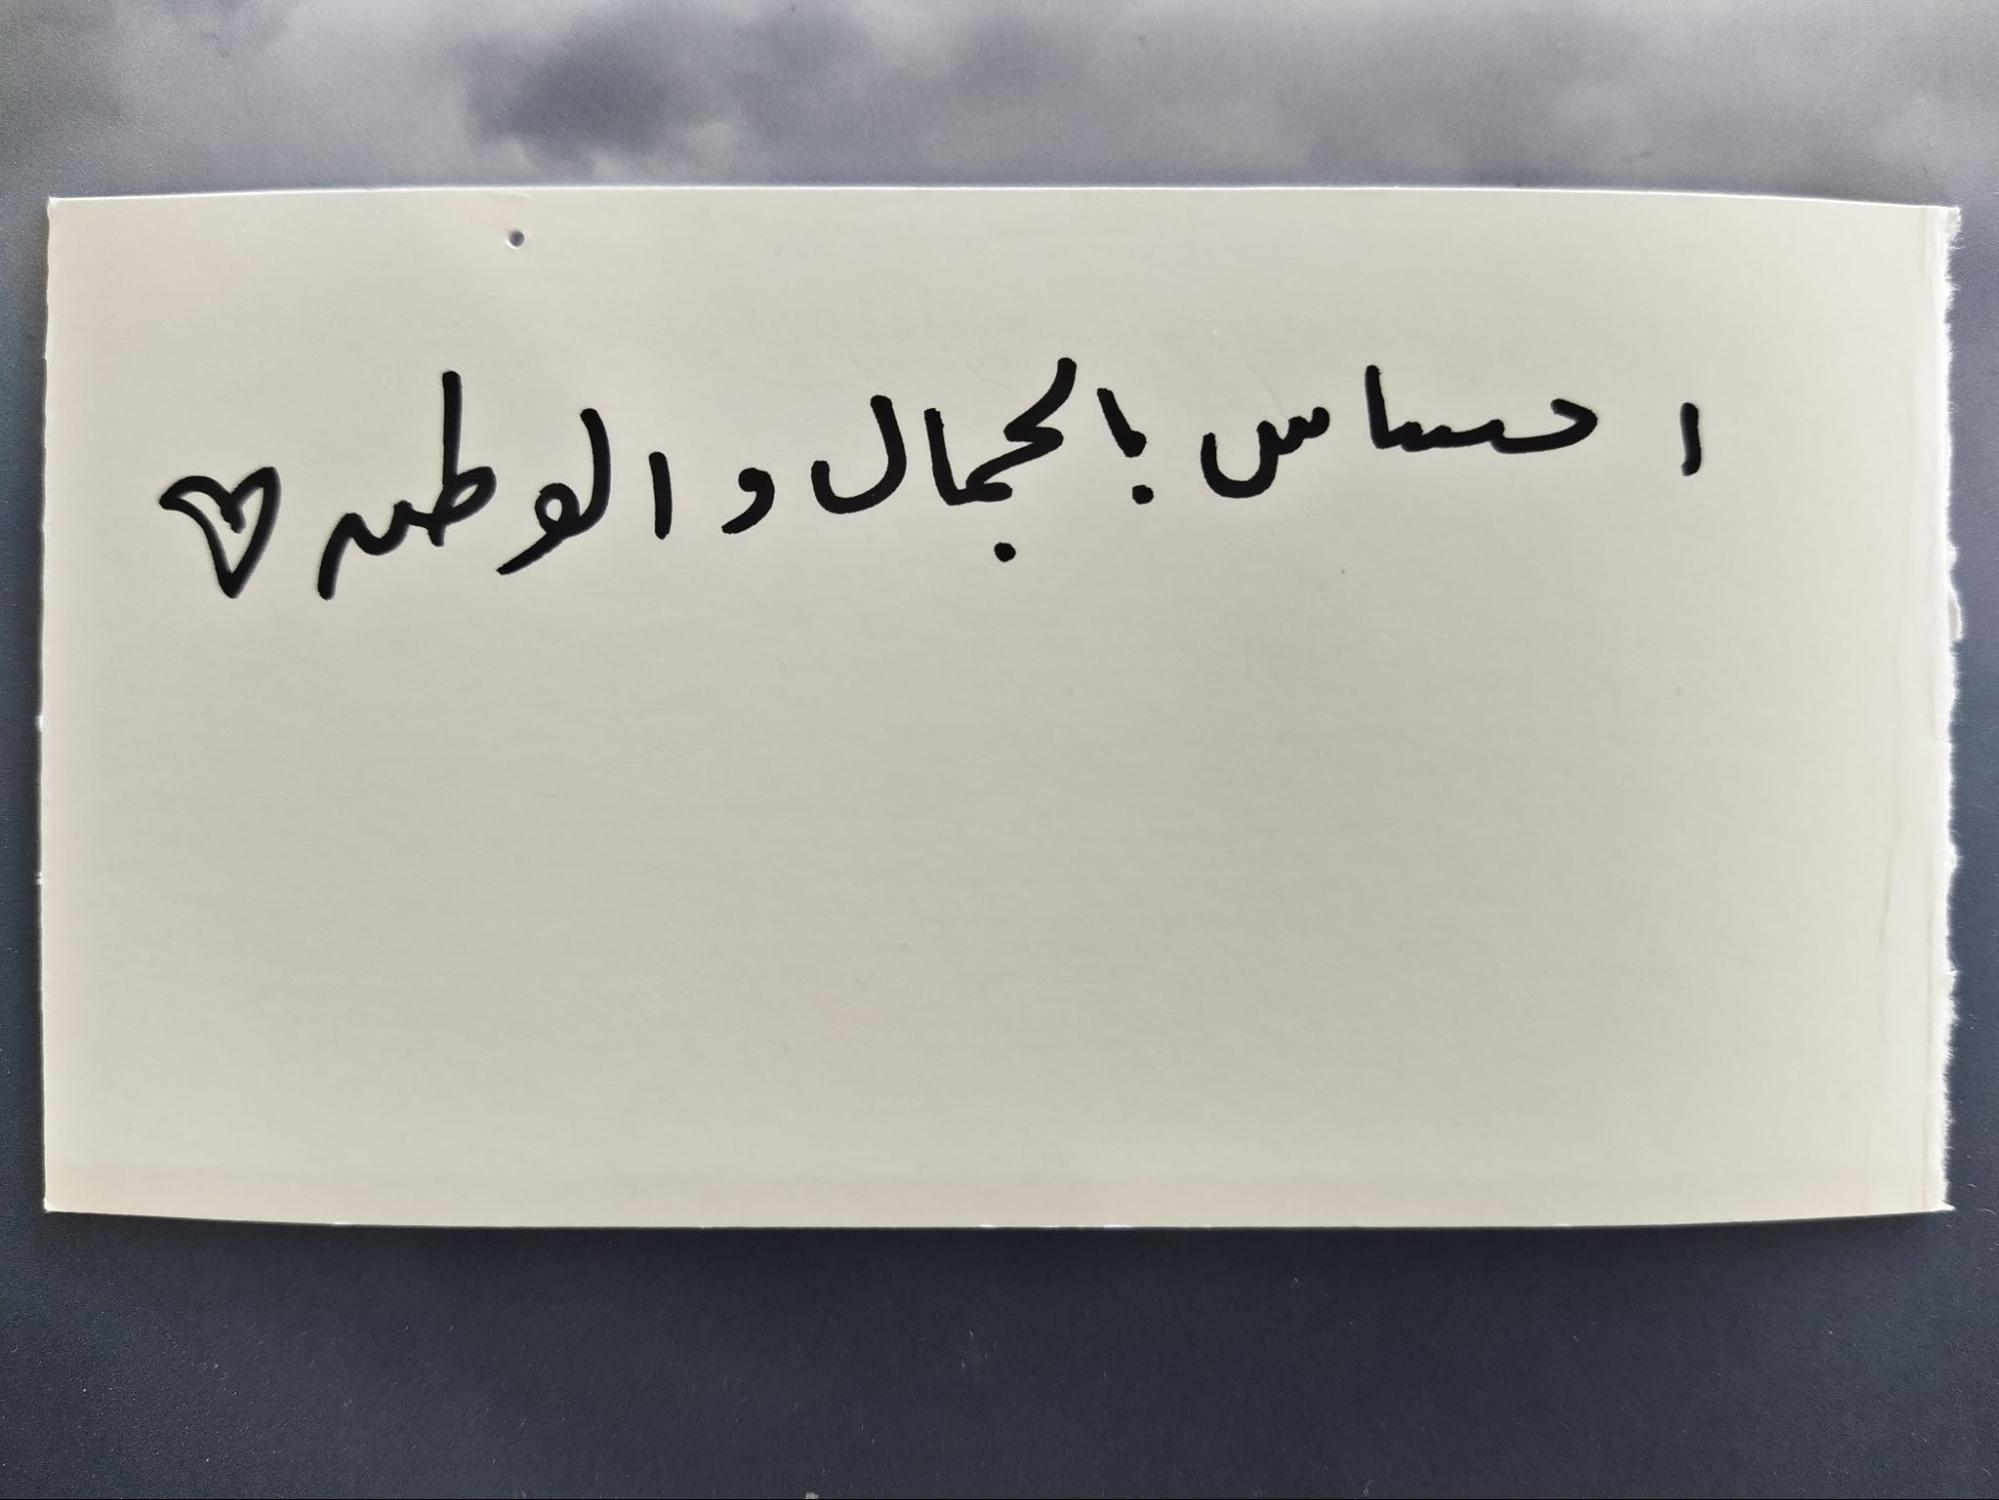 احساس بالجمال و الوطن ♡